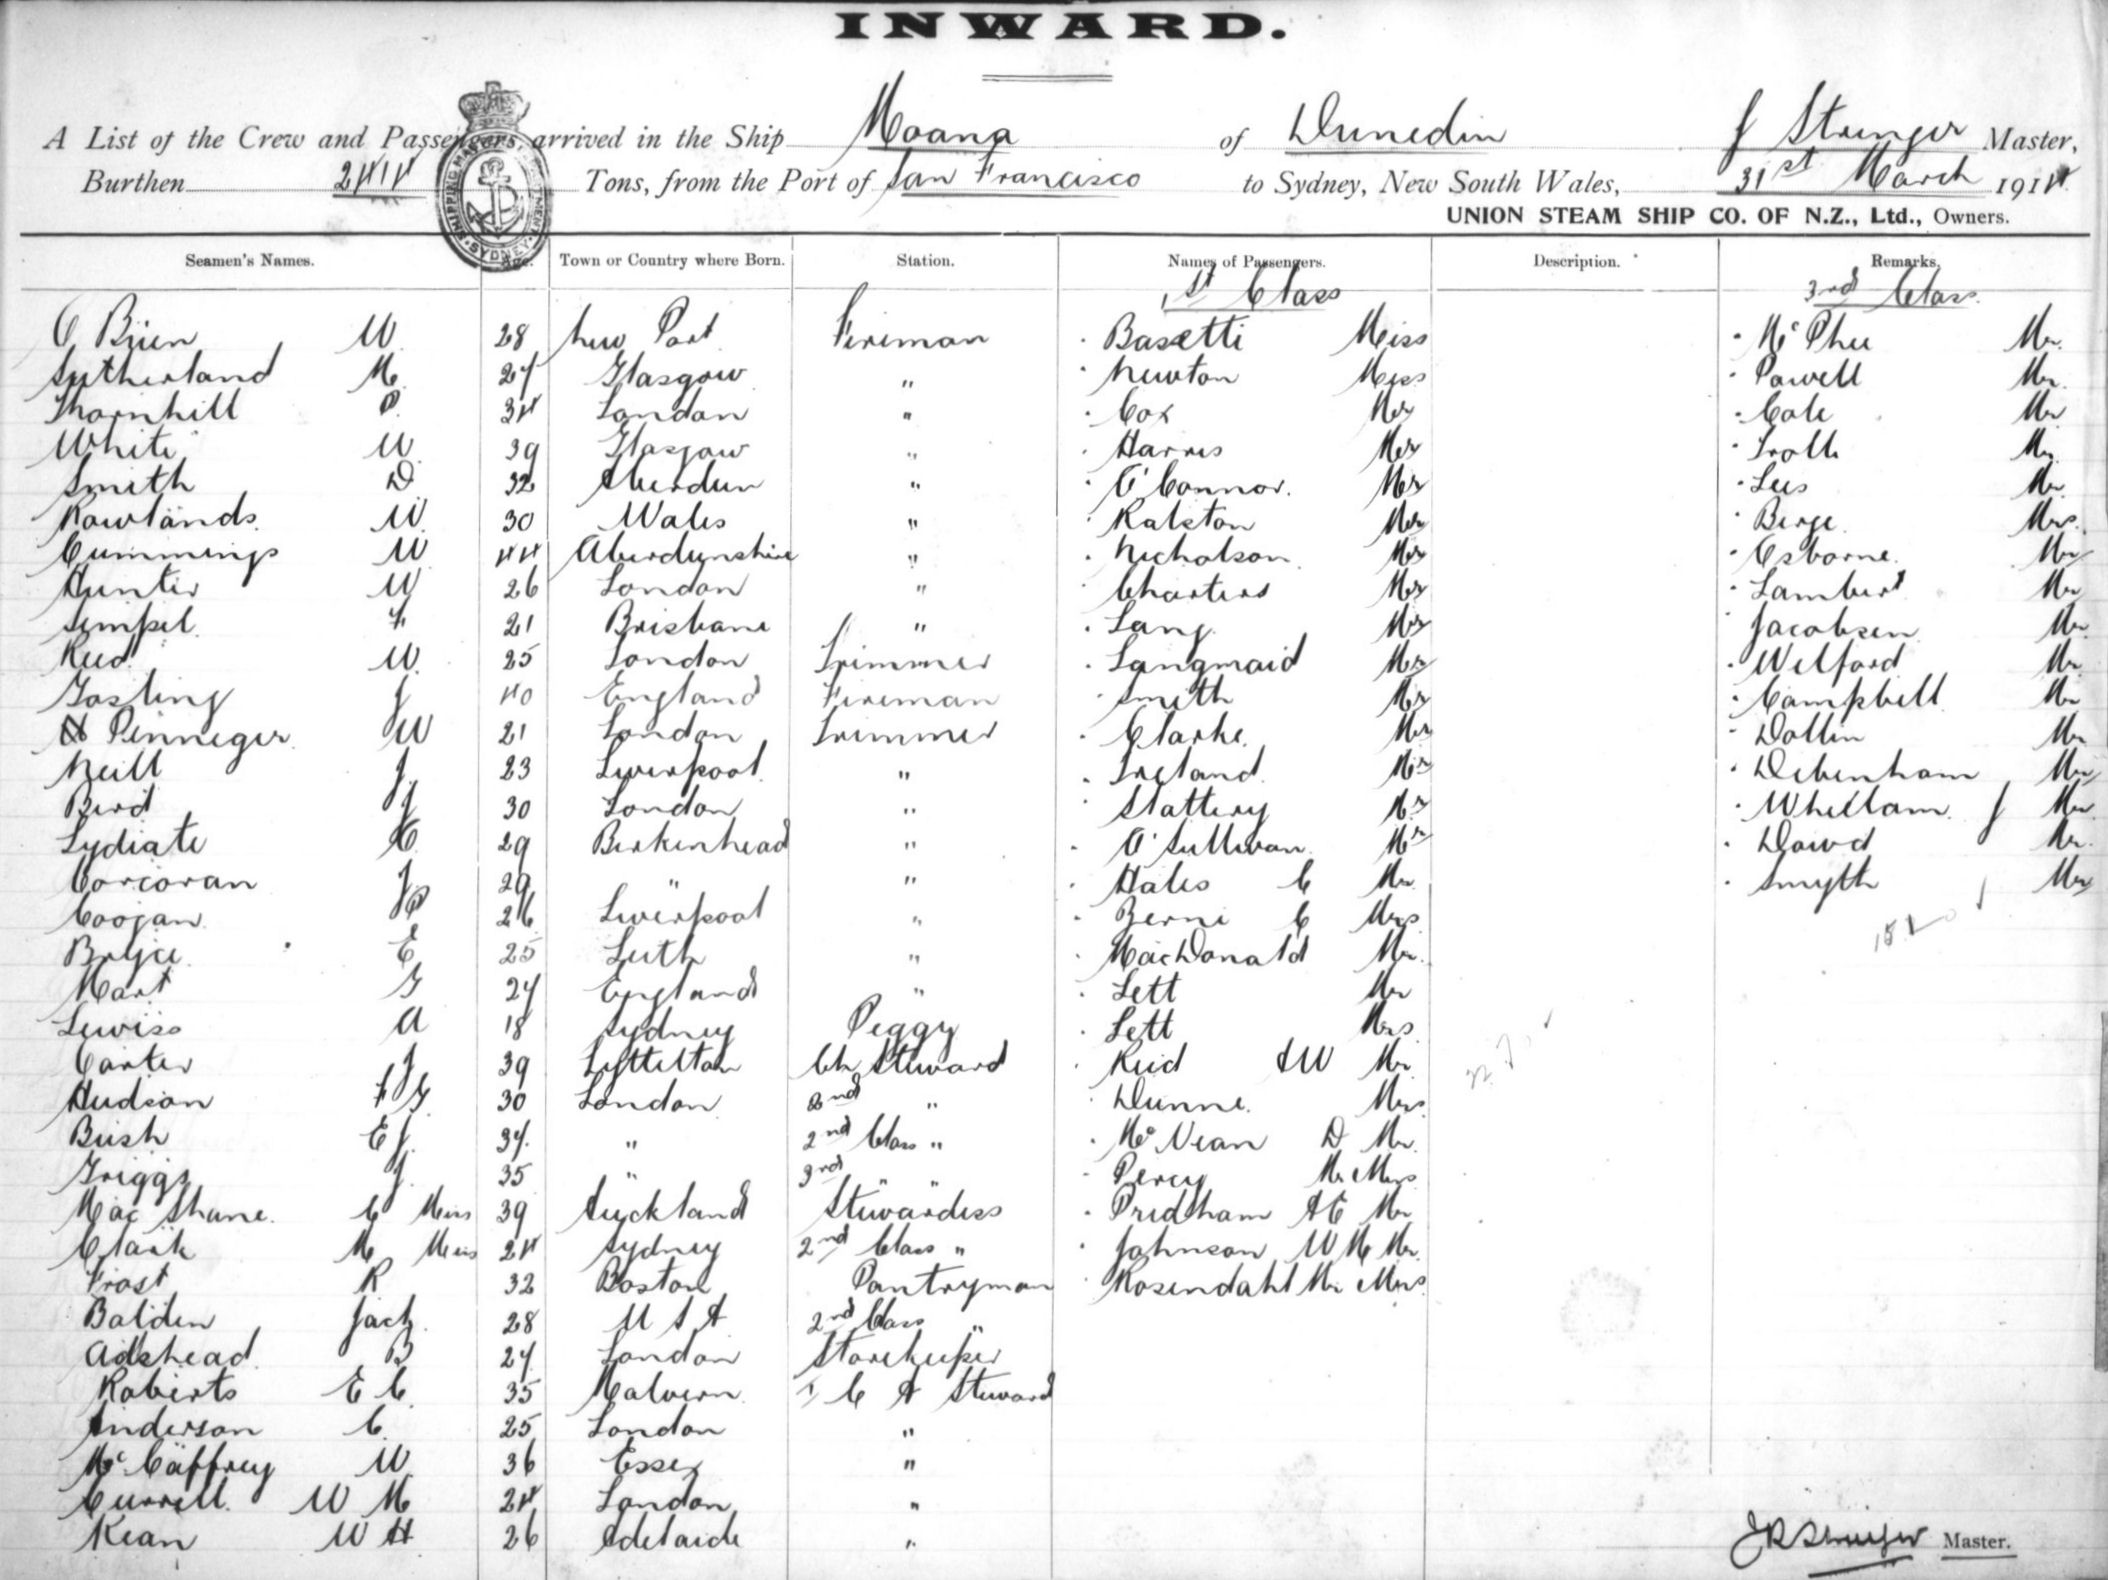 INWARD.
A List of the Crew and Passengers, arrived in the Ship Moana of Dunedin J Stringer Master,
Burthen 2414 Tons, from the Port of San Francisco to Sydney, New South Wales, 31st March 1914.
UNION STEAM SHIP CO. OF N.Z., Ltd., Owners.
SHIPPING MASTER SYDNEY
Seamen's Names. Age. Town or Country where Born. Station. Names of Passengers. Description. Remarks.
1st Class 3rd Class
O Brien W. 28 New Port Fireman Basetti Miss McPhee Mr.
Sutherland M. 27 Glasgow " Newton Miss Powell Mr
Thornhill P. 34 London " Cox Mr Cole Mr
White W. 39 Glasgow " Harris Mr Mr
Smith D 32 Aberdeen " O'Connor. Mr Lees Mr
Rowlands. W. 30 Wales " Ralston Mr Berge. Mrs.
Cummings W 44 Aberdeenshire " Nicholson. Mr Osborne. Mr
Hunter W 26 London " Charters Mr Lambert Mr
Sempel. F. 21 Brisbane " Lang. Mr Jacobsen Mr
Reed. W. 25 London Trimmer Langmaid Mr Welford Mr
Gosling J 40 England Fireman Smith Mr Campbell Mr
Penneger W 21 London Trimmer Clarke. Mr Dollin Mr
Neill J. 23 Liverpool. " Ireland. Mr Debenham Mr
Bird J 30 London " Slattery Mr Whellam. J Mr
Lydiate C. 29 Birkenhead " O'Sullivan. Mr Dowd Mr.
Corcoran J 29 " " Hales C Mr. Smyth Mr
Coogan. P 26 Liverpool " Berni C Mrs
Bryce. E 25 Leith " MacDonald Mr.
Mart G 27 England " Lett Mr
Lewiss A 18 Sydney Peggy Lett Mrs
Carter J 39 Lyttelton Ch Steward Reid A W Mr
Hudson F G 30 London 2nd " Dunne. Mrs
Bush E J. 37. " 2nd Class " McVean D Mr.
Griggs J. 35 " 3rd " " Percy Mr Mrs
Mac Shane. C Miss 39 Auckland Stewardess Pridham A E Mr
Clark M Miss 24 Sydney 2nd Class " Johnson W M Mr.
Frost R 32 Boston Pantryman Rosendahl Mr Mrs
Balden Jack 28 U S A 2nd Class "
Adshead. B 27 London Storekeeper
Roberts E C. 35 Malvern. 1 C A Steward
Anderson C. 25 London "
McCaffrey W 36 Essex "
Currell. W M 24 London "
Kean W H 26 Adelaide "
J R Stringer Master.